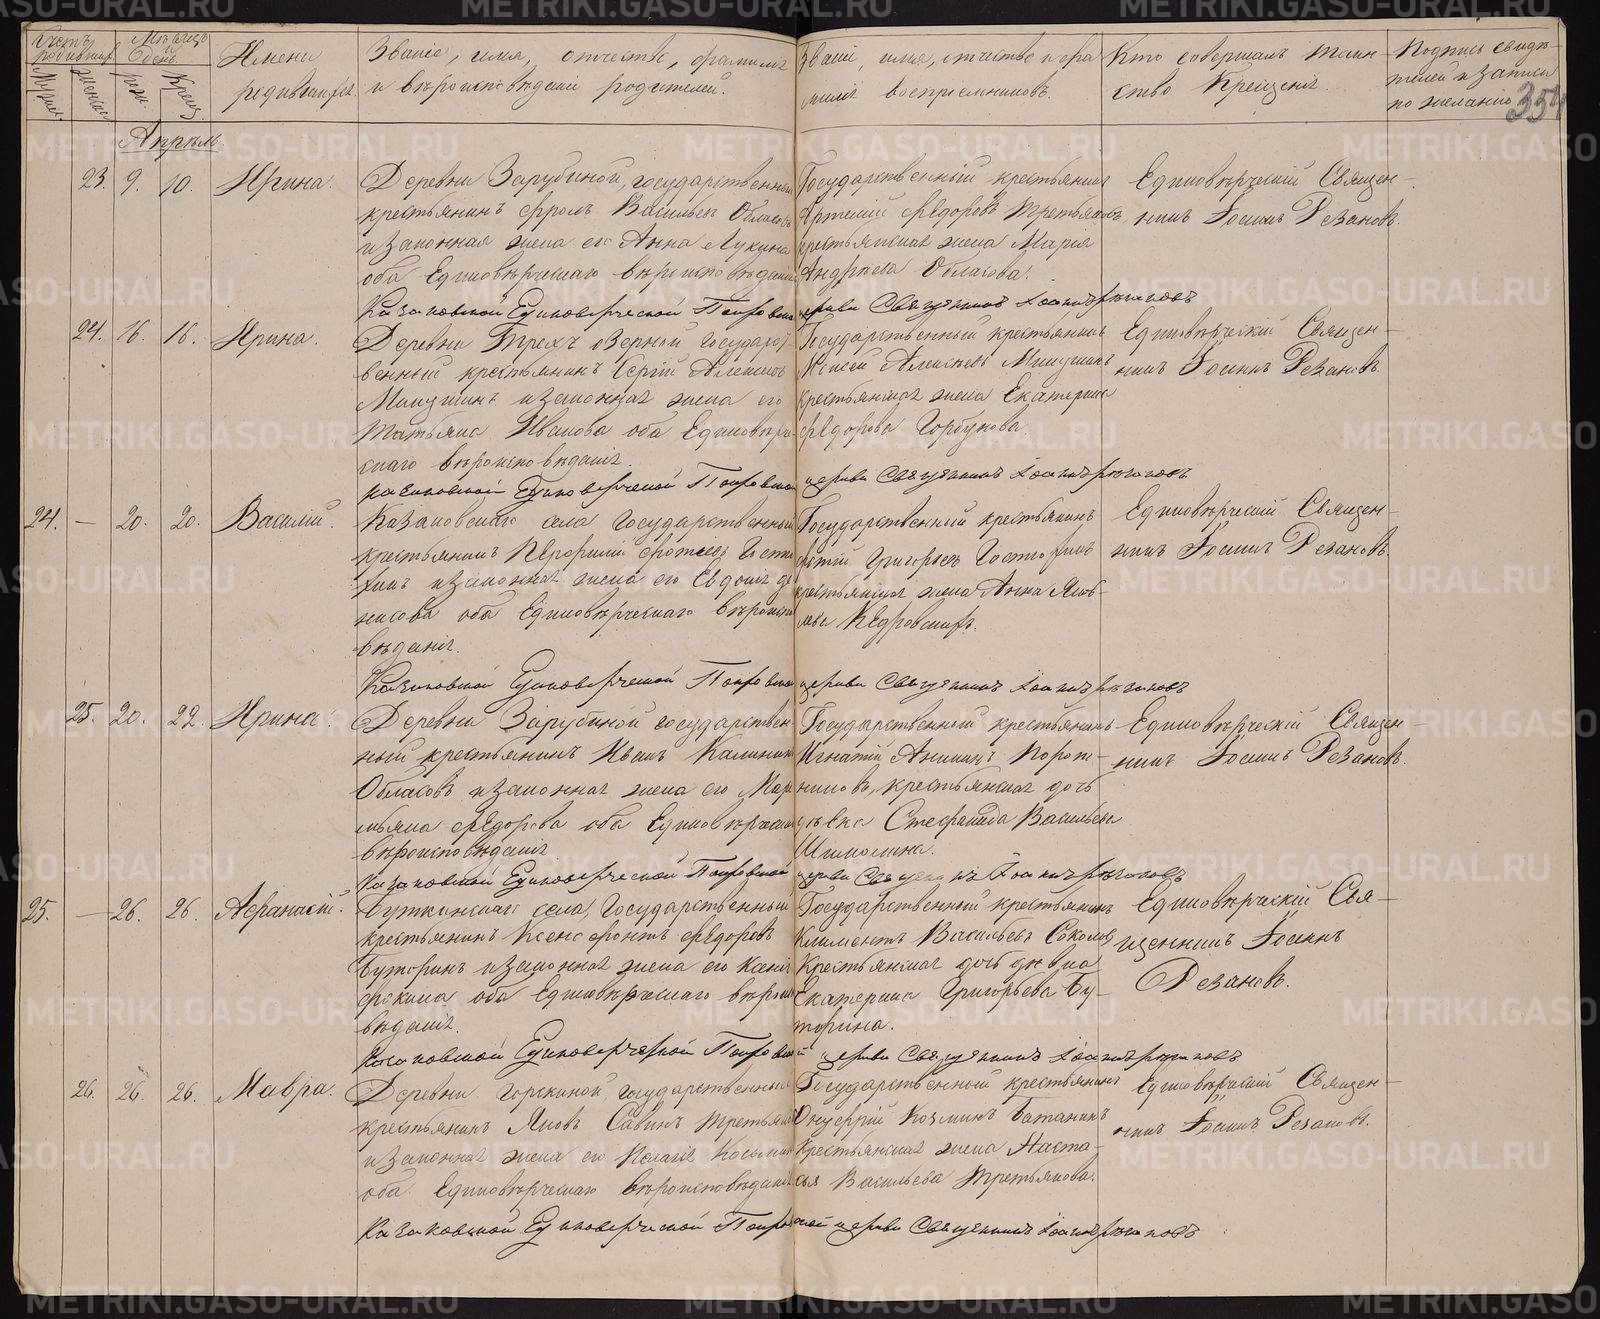 Счетъ родившихся
Мужеска
Женска
Мѣсяцъ и День.
рожд.
Крещ.
Имена родившихся.
Званіе, имя, отчество, фамилія и вѣроисповѣданіе родителей.
Званіе, имя, отчество и фамилія воспріемниковъ.
Кто совершалъ таинство Крещенія.
Подпись свидѣтелей и записи по желанію
354
Апрѣль
23. 9. 10. Ирина.
Деревни Зарубиной, государственный
крестьянинъ Фролъ Васильевъ Обласовъ
и законная жена его Анна Лукина
оба Единовѣрческаго вѣроисповѣданія
Государственный крестьянинъ
Артемій Ѳедоровъ Третьяковъ,
крестьянская жена Марія
Андреева Обласова.
Единовѣрческій Священ-
никъ Іоаннъ Рѣзановъ.
Казаковской Единоверческой Покровской церкви Священникъ Іоаннъ Рѣзановъ
24. 16. 16. Ирина.
Деревни Трехъ озерной государст-
венный крестьянинъ Сергій Алексеевъ
и законная жена его
Татьяна Иванова оба Единовѣрче-
скаго вѣроисповѣданія.
Государственный крестьянинъ
Моисей Алексеевъ
крестьянская жена Екатерина
Ѳедорова Горбунова.
Единовѣрческій Священ-
никъ Іоаннъ Рѣзановъ.
Казаковской Единоверческой Покровской церкви Священникъ Іоаннъ Рѣзановъ
24. — 20. 20. Василій.
Казаковскаго села Государственный
крестьянинъ
и законная жена его Евдокія Де-
нисова оба Единовѣрческаго вѣроиспо-
вѣданія.
Государственный крестьянинъ
Григорьевъ
крестьянская жена Анна Яков-
лева Кедровскихъ.
Единовѣрческій Священ-
никъ Іоаннъ Рѣзановъ.
Казаковской Единоверческой Покровской церкви Священникъ Іоаннъ Рѣзановъ
25. 20. 22. Ирина.
Деревни Зарубиной государствен-
ный крестьянинъ Иванъ Калининъ
Обласовъ и законная жена его Мар-
емьяна Ѳедорова оба Единовѣрческаго
вѣроисповѣданія
Государственный крестьянинъ
Игнатій Аникинъ Порот-
никовъ, крестьянская дочь
дѣвка Стефанида Васильева
Единовѣрческій Священ-
никъ Іоаннъ Рѣзановъ.
Казаковской Единоверческой Покровской церкви Священникъ Іоаннъ Рѣзановъ
25. — 26. 26. Афанасій.
Буткинскаго села, Государственный
крестьянинъ Ксенофонтъ Ѳедоровъ
Буторинъ и законная жена его Ксенія
Фокина оба Единовѣрческаго вѣроиспо-
вѣданія.
Государственный крестьянинъ
Климентъ Васильевъ Соколовъ,
Крестьянская дочь дѣвка
Екатерина Григорьева Бу-
торина.
Единовѣрческій Свя-
щенникъ Іоаннъ
Рѣзановъ.
Казаковской Единоверческой Покровской церкви Священникъ Іоаннъ Рѣзановъ
26. 26. 26. Мавра.
Деревни Горскиной, государственный
крестьянинъ Яковъ Савинъ Третьяковъ
и законная жена его Пелагія Косьмина
оба Единовѣрческаго вѣроисповѣданія
Государственный крестьянинъ
Онуфрій Козминъ Батанинъ
Крестьянская жена Наста-
сья Васильева Третьякова.
Единовѣрческій Священ-
никъ Іоаннъ Рѣзановъ.
Казаковской Единоверческой Покровской церкви Священникъ Іоаннъ Рѣзановъ
METRIKI.GASO-URAL.RU